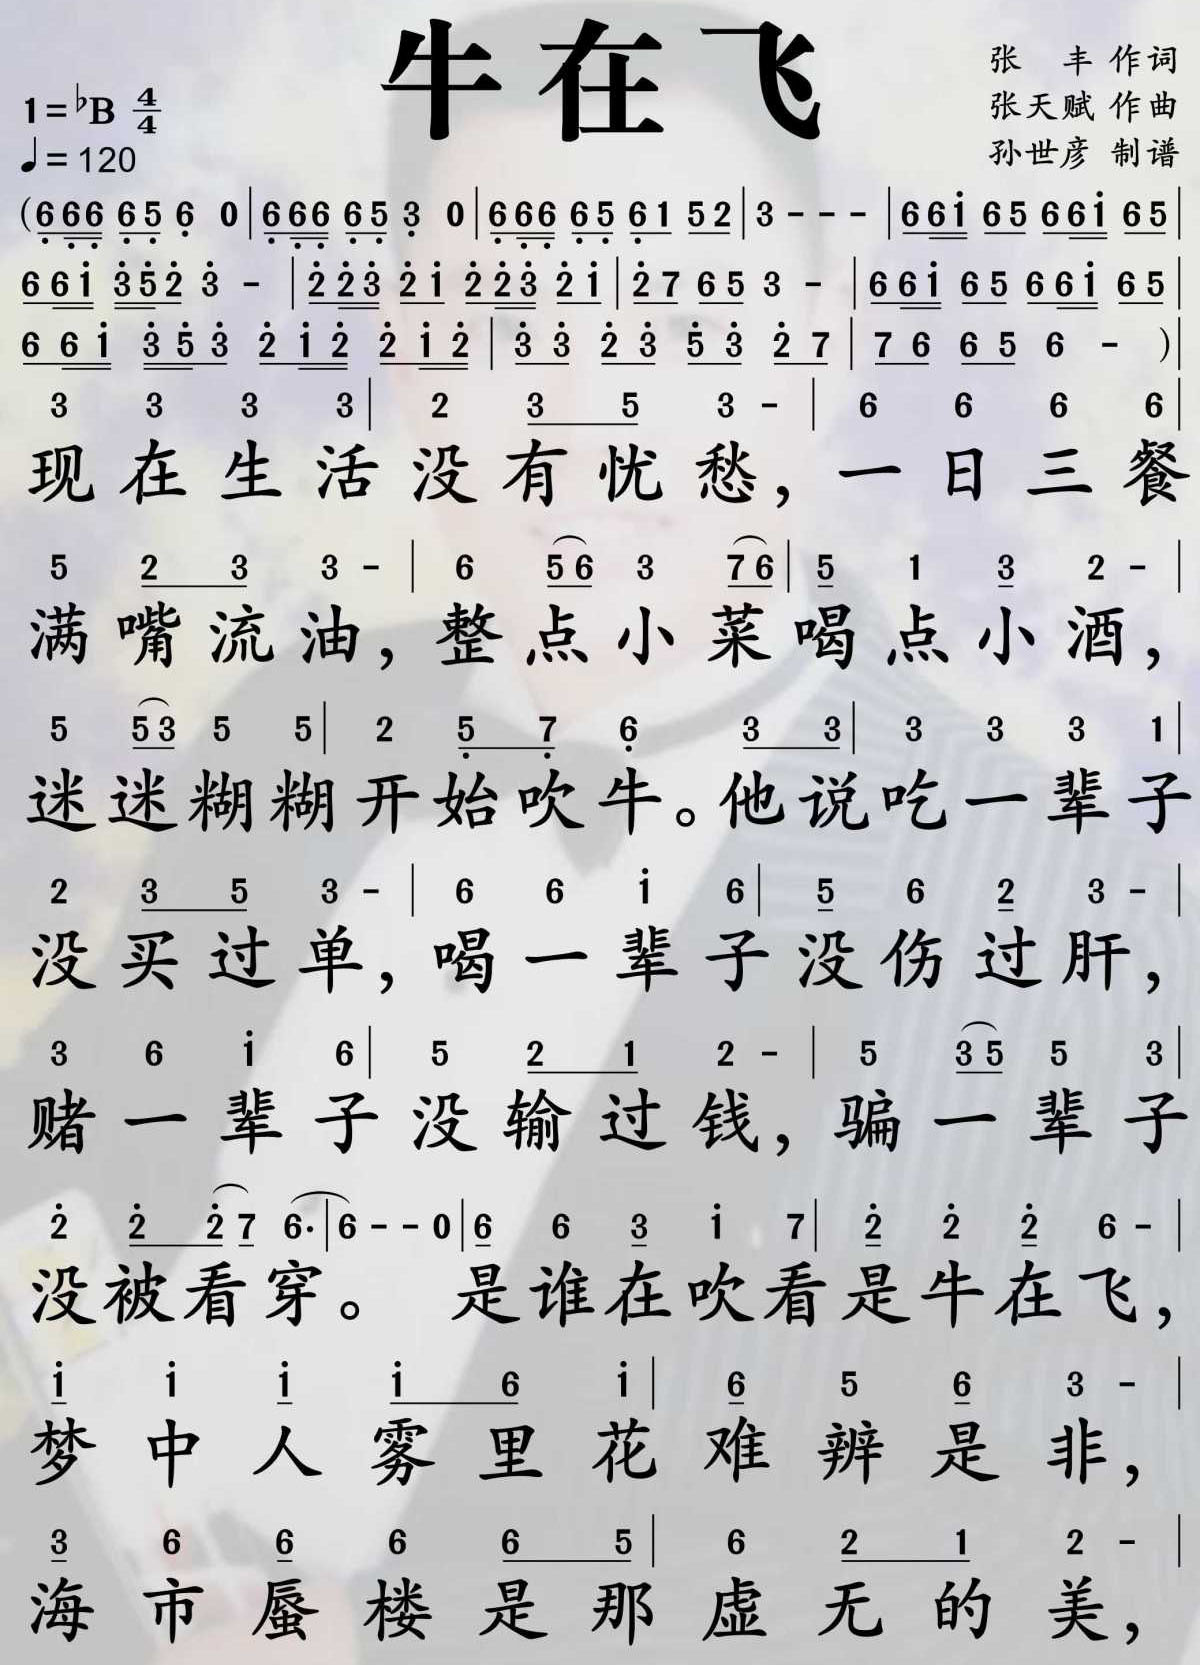 牛在飞
张 丰 作词
1=♭B 4/4
张天赋 作曲
♩=120
孙世彦 制谱
(6̣ 6̣6̣ 6̣5̣ 6̣ 0 | 6̣ 6̣6̣ 6̣5̣ 3̣ 0 | 6̣ 6̣6̣ 6̣5̣ 6̣1 52 | 3 - - - | 6 6i̇ 65 6 6i̇ 65 |
6 6i̇ 3̇5̇2̇ 3̇ - | 2̇ 2̇3̇ 2̇i̇ 2̇ 2̇3̇ 2̇i̇ | 2̇7 65 3 - | 6 6i̇ 65 6 6i̇ 65 |
6 6i̇ 3̇5̇3̇ 2̇i̇2̇ 2̇i̇2̇ | 3̇3̇ 2̇3̇ 5̇3̇ 2̇7 | 76 65 6 - ) |
3 3 3 3 | 2 3 5 3 - | 6 6 6 6 |
现在生活没有忧愁，一日三餐
5 2 3 3 - | 6 56 3 76 | 5 1 3 2 - |
满嘴流油，整点小菜喝点小酒，
5 53 5 5 | 2 5̣ 7̣ 6̣ 3 3 | 3 3 3 1 |
迷迷糊糊开始吹牛。他说吃一辈子
2 3 5 3 - | 6 6 i̇ 6 | 5 6 2 3 - |
没买过单，喝一辈子没伤过肝，
3 6 i̇ 6 | 5 2 1 2 - | 5 35 5 3 |
赌一辈子没输过钱，骗一辈子
2̇ 2̇ 2̇7 6· | 6 - - 0 | 6 6 3 i̇ 7 | 2̇ 2̇ 2̇ 6 - |
没被看穿。 是谁在吹看是牛在飞，
i̇ i̇ i̇ i̇ 6 i̇ | 6 5 6 3 - |
梦中人雾里花难辨是非，
3 6 6 6 6 5 | 6 2 1 2 - |
海市蜃楼是那虚无的美，